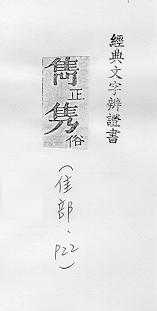 經典文字辨證書
雋正
隽俗
(隹部、P22)